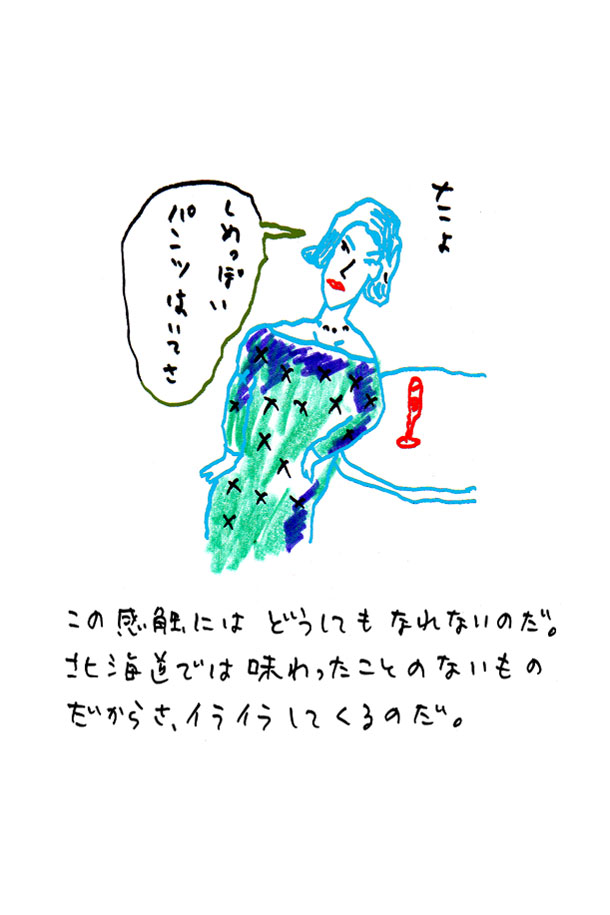 しめっぽい
パンツはいてさ
たよ
この感触にはどうしてもなれないのだ。
北海道では味わったことのないもの
だからさ、イライラしてくるのだ。